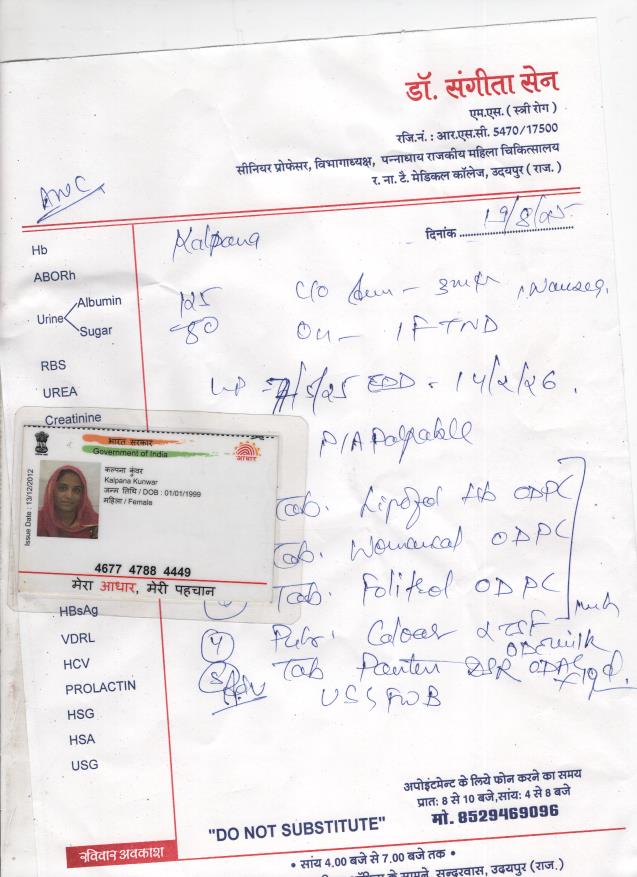 डॉ. संगीता सेन
एम.एस. ( स्त्री रोग )
रजि.नं. : आर.एस.सी. 5470/17500
सीनियर प्रोफेसर, विभागाध्यक्ष, पन्नाधाय राजकीय महिला चिकित्सालय
र. ना. टै. मेडिकल कॉलेज, उदयपुर (राज.)
ANC
दिनांक 19/8/25
Kalpana
Hb
ABORh
Urine
Albumin
Sugar
125
80
C/O Amn - 3
, Nausea.
O/E - 1 F T N D
RBS
UREA
Creatinine
LMP = 7/5/25 EDD = 14/2/26.
P/A Palpable
भारत सरकार
Government of India
आधार
Issue Date : 13/12/2012
कल्पना कुंवर
Kalpana Kunwar
जन्म तिथि / DOB : 01/01/1999
महिला / Female
4677 4788 4449
मेरा आधार, मेरी पहचान
Tab. Hb OD PC
Tab. OD PC
Tab. OD PC
HBsAg
VDRL
HCV
PROLACTIN
HSG
HSA
USG
4
milk
5 Tab DSR OD
USG FWB
अपोइंटमेन्ट के लिये फोन करने का समय
प्रातः 8 से 10 बजे,सांयः 4 से 8 बजे
मो. 8529469096
"DO NOT SUBSTITUTE"
रविवार अवकाश
• सांय 4.00 बजे से 7.00 बजे तक •
के सामने, सुन्दरवास, उदयपुर (राज.)